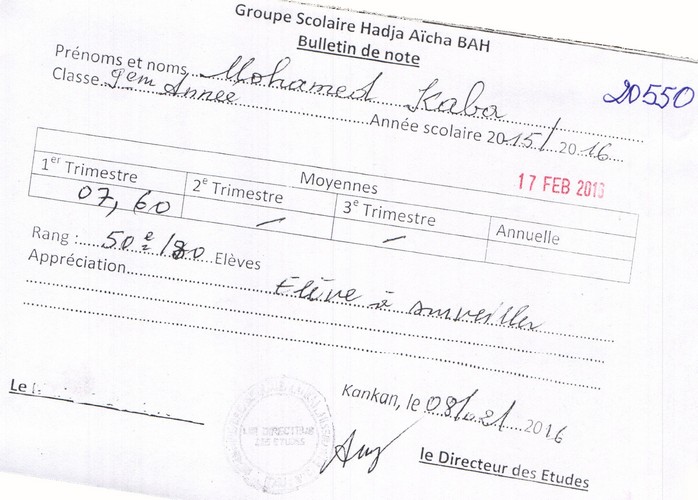 Groupe Scolaire Hadja Aïcha BAH
Bulletin de note
Prénoms et noms Mohamed Kaba
20550
Classe 9em Année
Année scolaire 2015/2016
Moyennes
17 FEB 2016
1er Trimestre 2e Trimestre 3e Trimestre Annuelle
07,60 — —
Rang : 50e/80 Elèves
Appréciation Elève à surveiller
Kankan, le 08/02/2016
Le
LES DIRECTEUR
DES ETUDES
le Directeur des Etudes